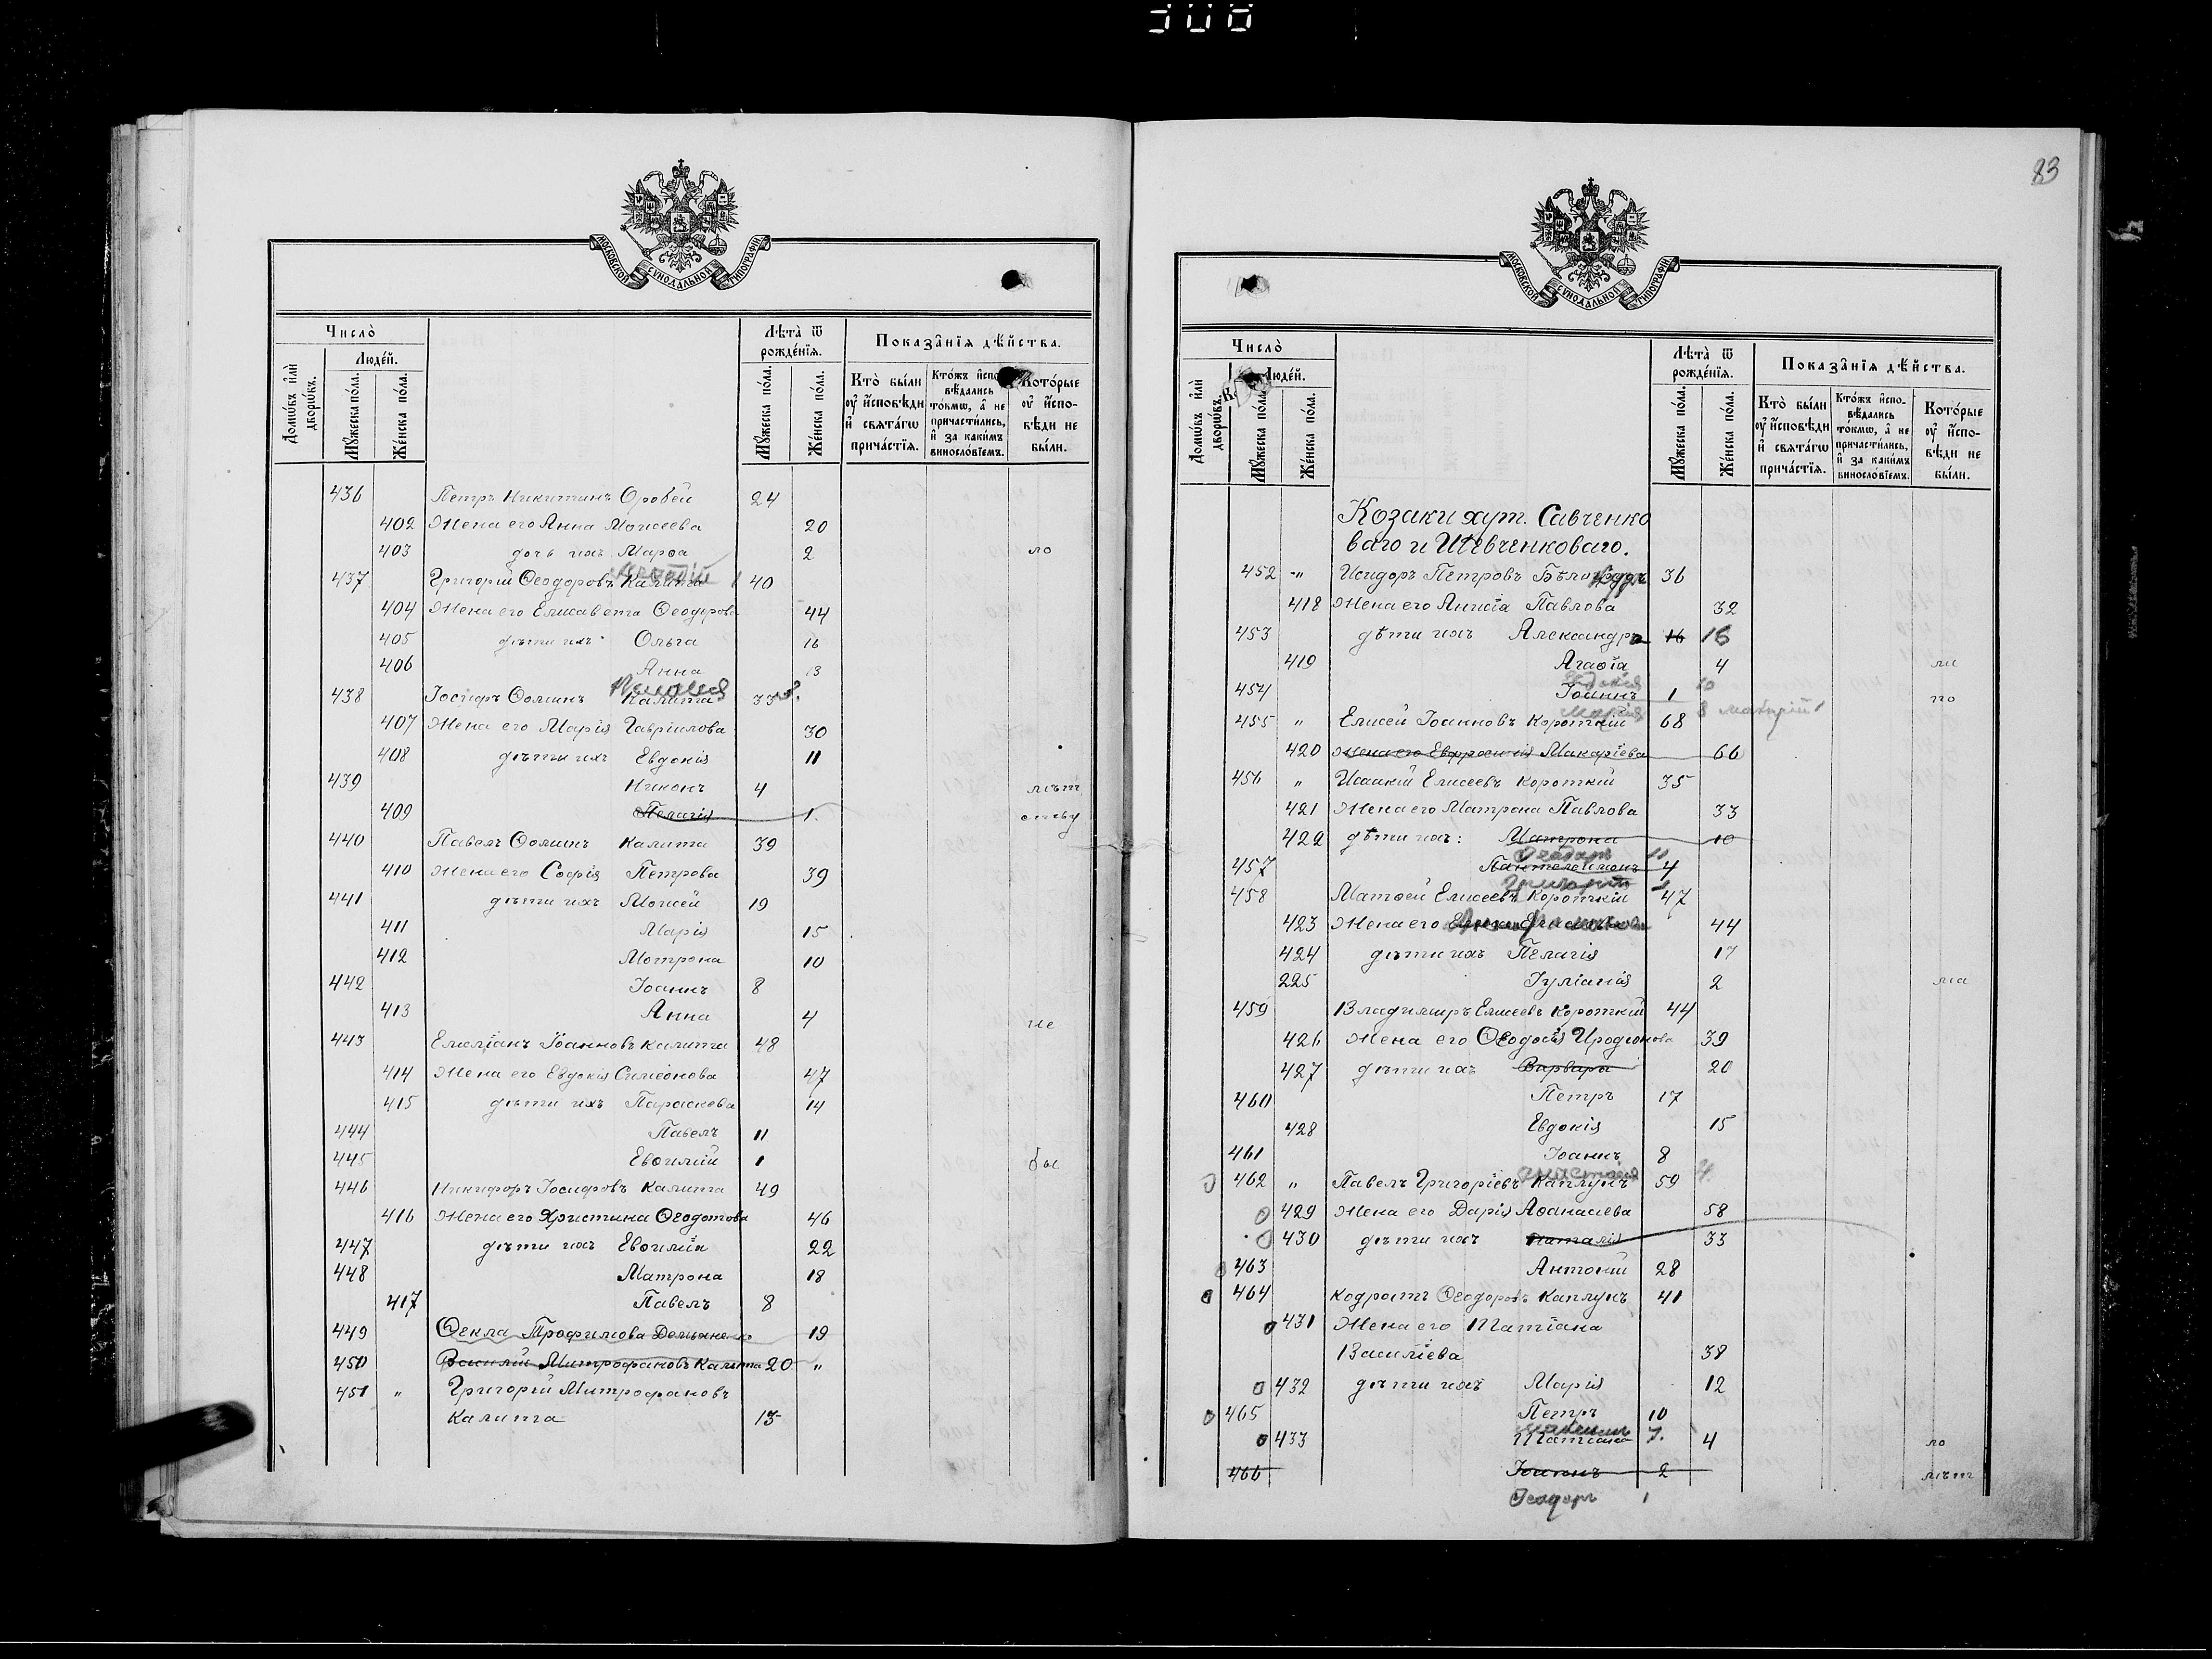 83
МОСКОВСКОЙ СѴНОДАЛЬНОЙ ТИПОГРАФІИ
Число̀
Людéй.
Домѡ́въ и҆лѝ дворѡ́въ.
Мꙋ́жеска по́ла.
Же́нска по́ла.
Лѣ́та ѿ рожде́нїѧ.
Мꙋ́жеска по́ла.
Же́нска по́ла.
Показа̑нїѧ дѣ́йства.
Кто̀ бы́ли оу҆ и҆сповѣ́ди и҆ свѧта́гѡ прича́стїѧ.
Кто́жъ и҆спо-
вѣ́дались то́кмѡ, а҆ не причасти́лись, и҆ за каки́мъ винослóвїемъ.
Кото́рые оу҆ и҆спо-
вѣ́ди не бы́ли.
436 Петръ Никитинъ Оробей 24
402 Жена его Анна Моисеева 20
403 дочь ихъ Марѳа 2 ло
437 Григорій Ѳеодоровъ Калита 40
404 Жена его Елисавета Ѳеодорова 44
405 дѣти ихъ Ольга 16
406 Анна 13
438 Іосифъ Ѳоминъ Калита 33
407 Жена его Марія Гавріилова 30
408 дѣти ихъ Евдокія 11
439 Никонъ 4 лѣт
409 Пелагія 1
440 Павелъ Ѳоминъ Калита 39
410 Жена его Софія Петрова 39
441 дѣти ихъ Моисей 19
411 Марія 15
412 Мотрона 10
442 Іоаннъ 8
413 Анна 4 не
443 Емеліанъ Іоанновъ Калита 48
414 Жена его Евдокія Симеонова 47
415 дѣти ихъ Параскева 14
444 Павелъ 11
445 Евѳимій 1 бы
446 Никифоръ Іосифовъ Калита 49
416 Жена его Христина Ѳеодотова 46
447 дѣти ихъ Евѳимія 22
448 Матрона 18
417 Павелъ 8
449 Ѳекла Трофимова 19
450 Василій Митрофановъ Калита 20 "
451 " Григорій Митрофановъ
Калита 13
МОСКОВСКОЙ СѴНОДАЛЬНОЙ ТИПОГРАФІИ
Число̀
Людéй.
Домѡ́въ и҆лѝ дворѡ́въ.
Мꙋ́жеска по́ла.
Же́нска по́ла.
Лѣ́та ѿ рожде́нїѧ.
Мꙋ́жеска по́ла.
Же́нска по́ла.
Показа̑нїѧ дѣ́йства.
Кто̀ бы́ли оу҆ и҆сповѣ́ди и҆ свѧта́гѡ прича́стїѧ.
Кто́жъ и҆спо-
вѣ́дались то́кмѡ, а҆ не причасти́лись, и҆ за каки́мъ винослóвїемъ.
Кото́рые оу҆ и҆спо-
вѣ́ди не бы́ли.
Козаки хут. Савченко
ваго и Шевченковаго.
452 " Исидоръ Петровъ 36
418 Жена его Анисія Павлова 32
453 дѣти ихъ Александра 16 16
419 Агаѳія 4 ли
Евдокія 10
454 Іоаннъ 1 по
Марія 8
455 " Елисей Іоанновъ Короткій 68
420 Жена его Евфросинія Макаріева 66
456 " Исаакій Елисеевъ Короткій 35
421 Жена его Матрона Павлова 33
422 дѣти ихъ: Матрона 10
Ѳеодоръ 11
457 Пантелеимонъ 4
Григорій
458 Матѳей Елисеевъ Короткій 47
423 Жена его 44
424 дѣти ихъ Пелагія 17
225 Іуліанія 2 ма
459 Владимиръ Елисеевъ Короткій 44
426 Жена его Ѳеодосія Иродіонова 39
427 дѣти ихъ Варвара 20
460 Петръ 17
428 Евдокія 15
461 Іоаннъ 8
Анастасія 4
462 " Павелъ Григоріевъ Каплунъ 59
429 Жена его Дарія Аѳанасіева 58
430 дѣти ихъ Наталія 33
463 Антоній 28
464 Кодратъ Ѳеодоровъ Каплунъ 41
431 Жена его Татіана
Василіева 38
432 дѣти ихъ Марія 12
465 Петръ 10
Максимъ 7
433 Татіана 4 ло
466 Іоаннъ 2 лѣт
Ѳеодоръ 1